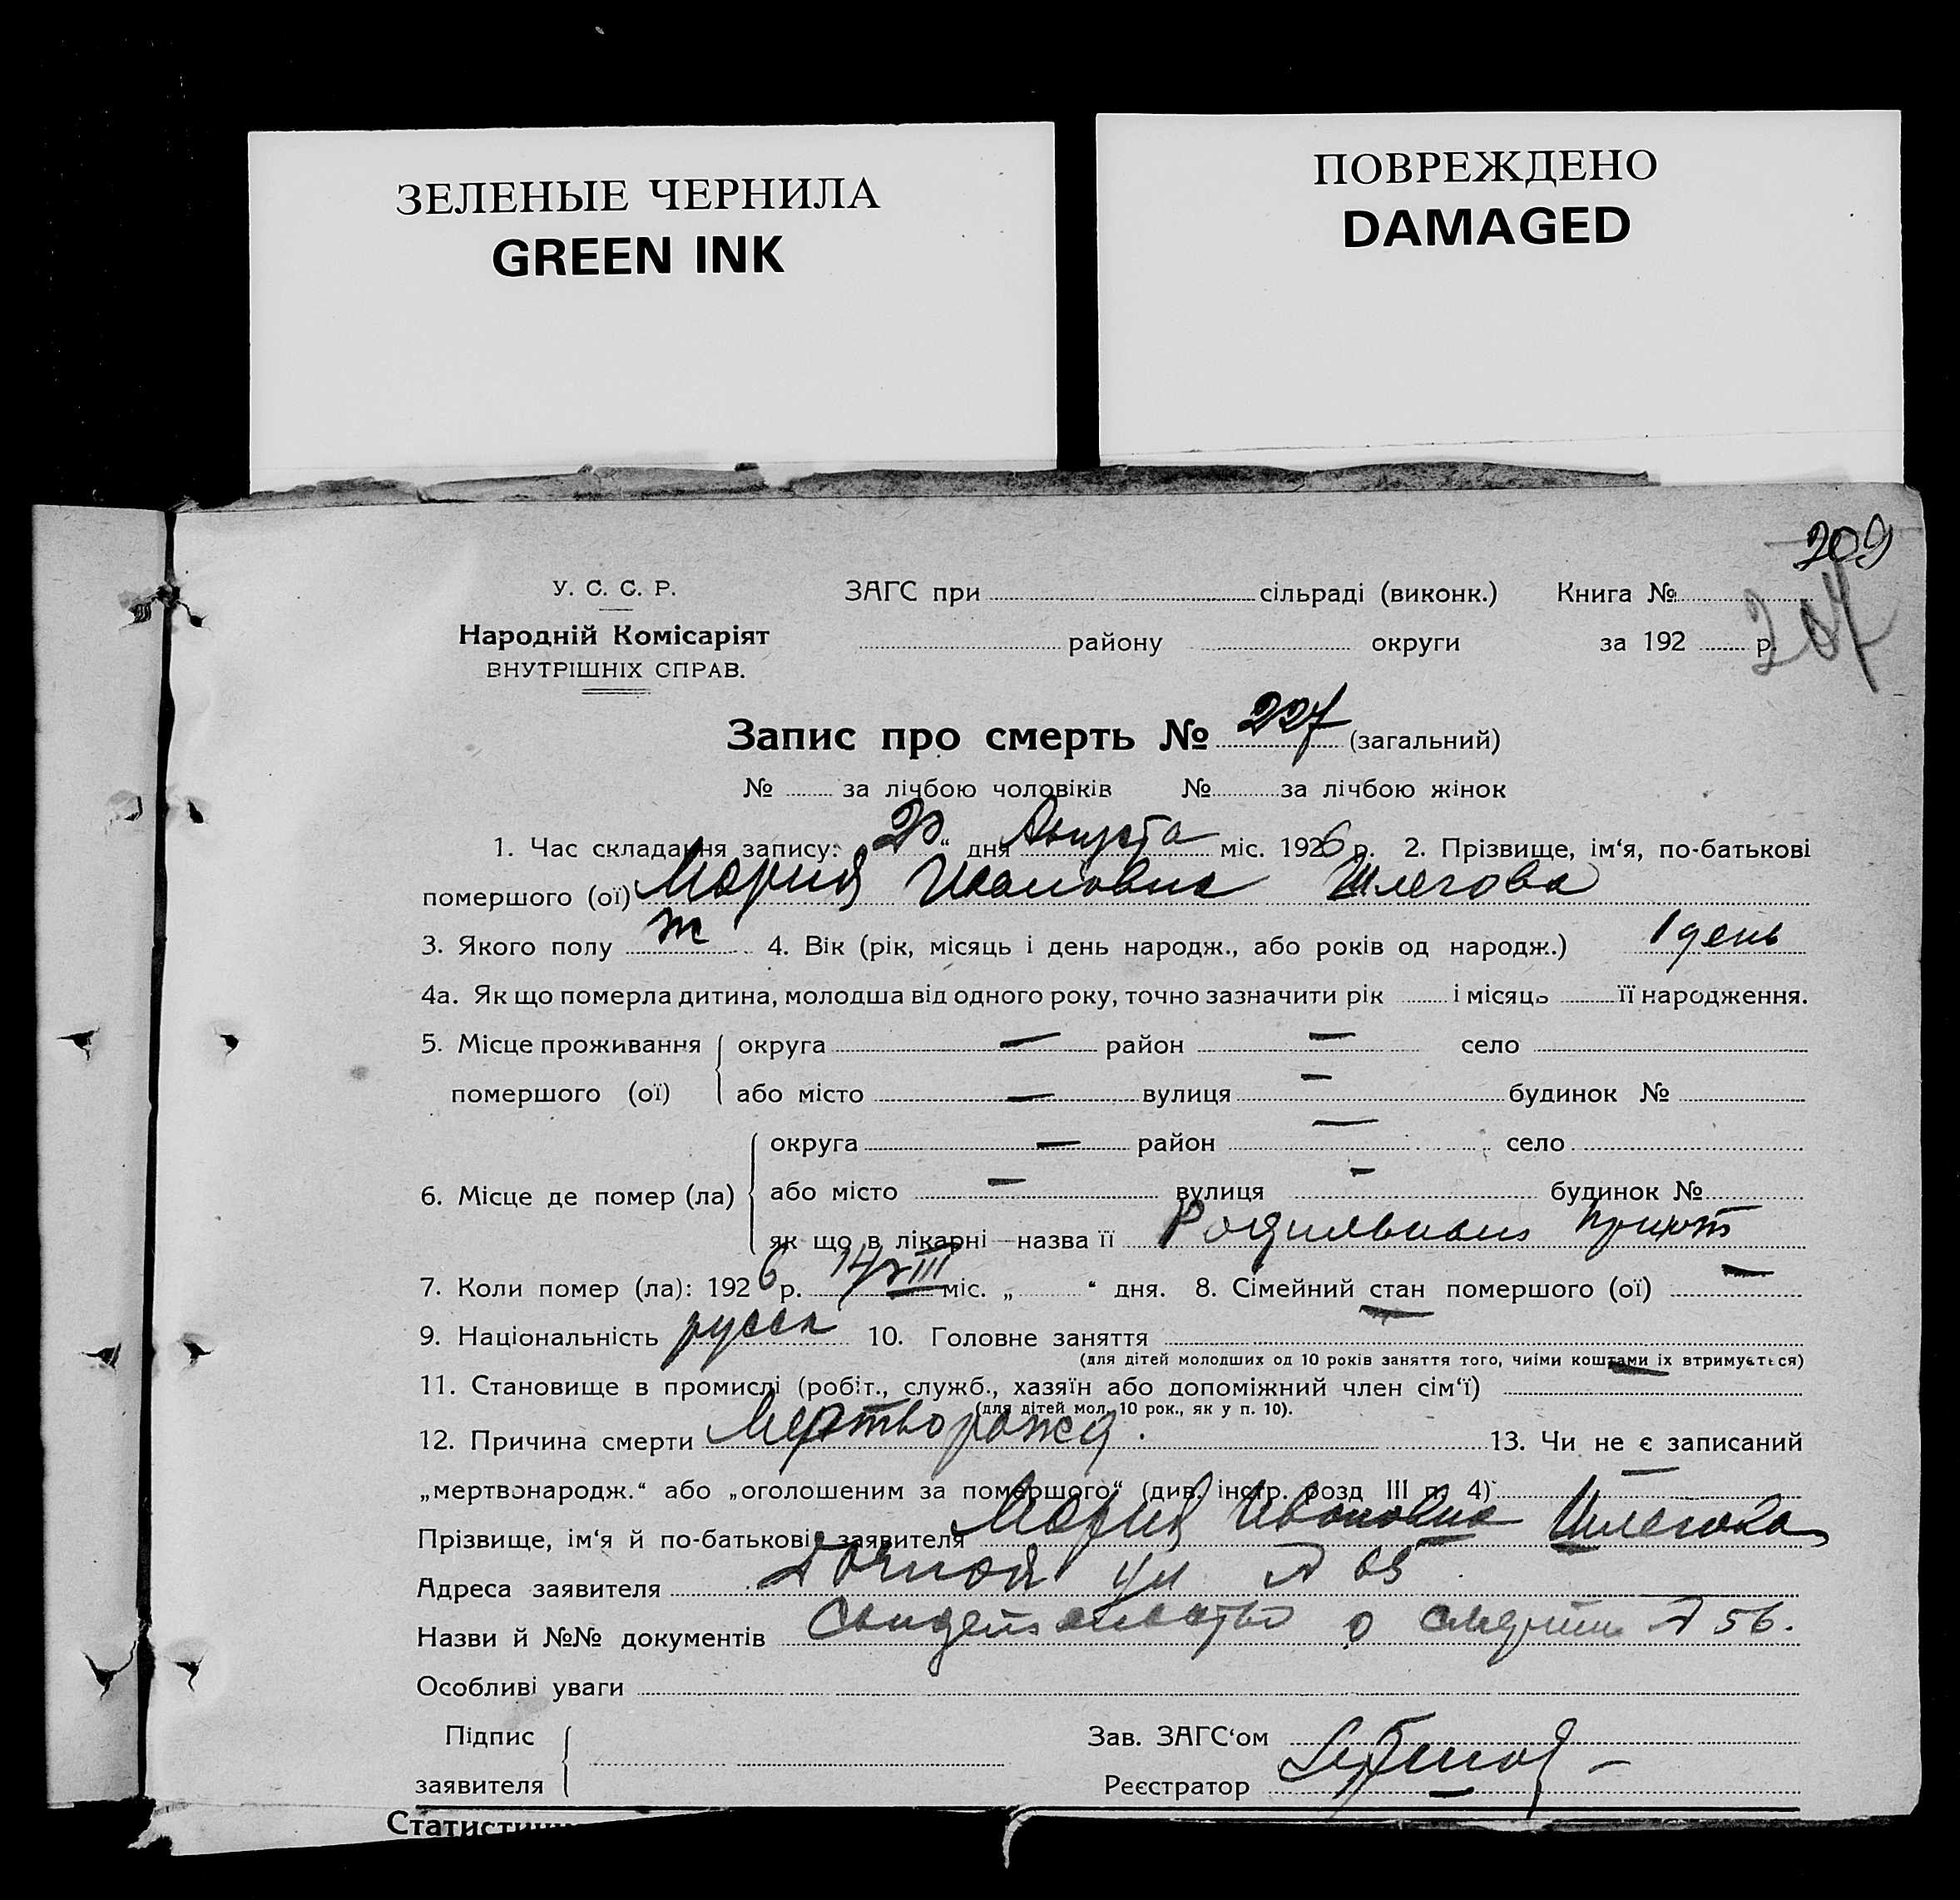 ЗЕЛЕНЫЕ ЧЕРНИЛА
GREEN INK
ПОВРЕЖДЕНО
DAMAGED
209
207
У. С. С. Р.
Народній Комісаріят
ВНУТРІШНІХ СПРАВ.
ЗАГС при сільраді (виконк.) Книга №
району округи за 192 р.
Запис про смерть № 227 (загальний)
№ за лічбою чоловіків № за лічбою жінок
1. Час складання запису: “ дня Августа міс. 1926 р. 2. Прізвище, ім‘я, по-батькові
помершого (ої) Мария Ивановна Шлегова
3. Якого полу ж 4. Вік (рік, місяць і день народж., або років од народж.) 1 день
4а. Як що померла дитина, молодша від одного року, точно зазначити рік і місяць її народження.
5. Місце проживання округа — район — село
помершого (ої) або місто — вулиця — будинок №
округа — район — село
6. Місце де помер (ла) або місто — вулиця — будинок №
як що в лікарні — назва її Родильный приют
7. Коли помер (ла): 1926 р. 14/VIII міс. „ “ дня. 8. Сімейний стан помершого (ої) —
9. Національність русск 10. Головне заняття —
(для дітей молодших од 10 років заняття того, чиїми коштами їх втримується)
11. Становище в промислі (робіт., служб., хазяїн або допоміжний член сім‘ї) —
(для дітей мол. 10 рок., як у п. 10).
12. Причина смерти Мертворожд. 13. Чи не є записаний
„мертвонародж.“ або „оголошеним за помершого“ (див. інстр. розд III п. 4) —
Прізвище, ім‘я й по-батькові заявителя Мария Ивановна Шлегова
Адреса заявителя ул № 65
Назви й №№ документів Свидетельство о смерти № 56.
Особливі уваги
Підпис
заявителя
Зав. ЗАГС‘ом
Реєстратор